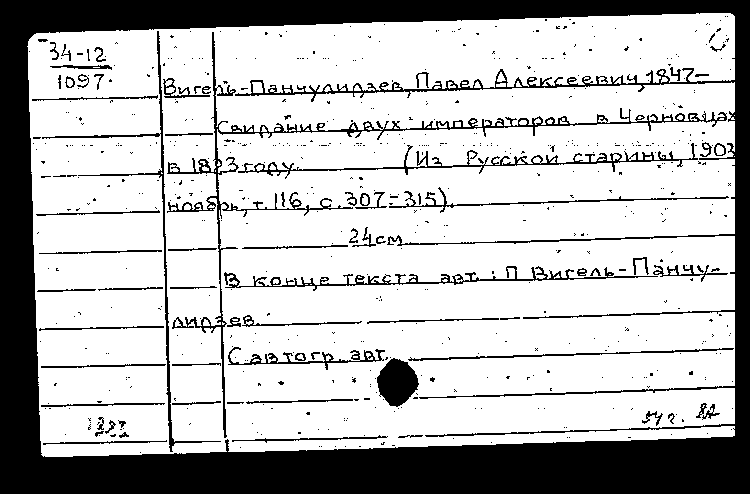 34-12
1097.
Вигель-Панчулидзев, Павел Алексеевич, 1847-
Свидание двух императоров в Черновцах
в 1823 году. (Из Русской старины, 1903
ноябрь, т. 116, с. 307-315).
24 см
В конце текста авт.: П Вигель-Панчу-
лидзев.
С автогр. авт.
54 г.